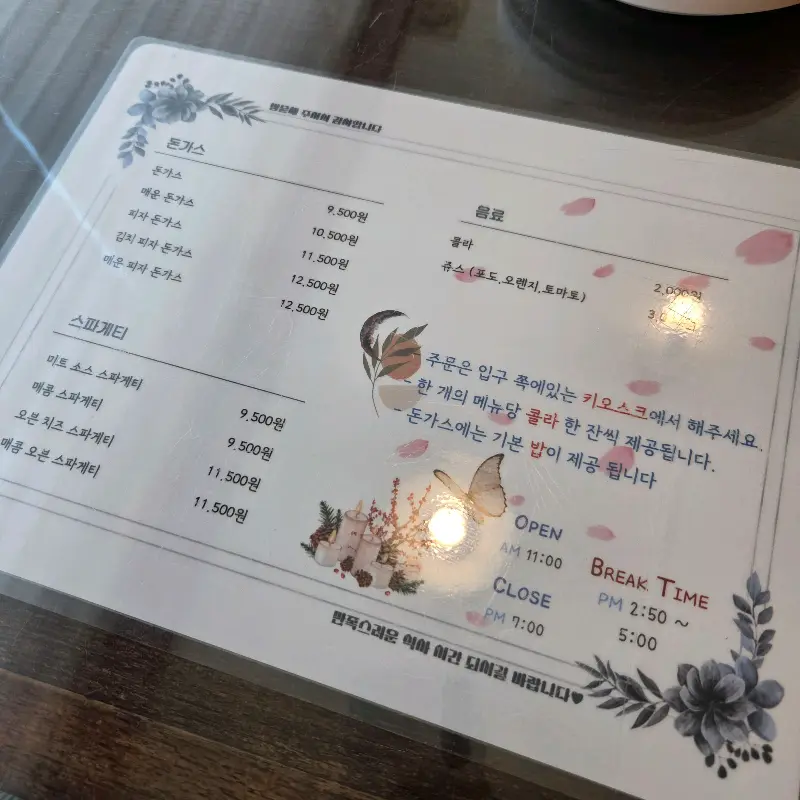 방문해 주셔서 감사합니다
돈가스
돈가스 9,500원
매운 돈가스 10,500원
피자 돈가스 11,500원
김치 피자 돈가스 12,500원
매운 피자 돈가스 12,500원
스파게티
미트 소스 스파게티 9,500원
매콤 스파게티 9,500원
오븐 치즈 스파게티 11,500원
매콤 오븐 스파게티 11,500원
음료
콜라 2,000원
쥬스 (포도,오렌지,토마토)
- 주문은 입구 쪽에있는 키오스크에서 해주세요.
- 한 개의 메뉴당 콜라 한 잔씩 제공됩니다.
- 돈가스에는 기본 밥이 제공 됩니다
OPEN
AM 11:00
CLOSE
PM 7:00
BREAK TIME
PM 2:50 ~
5:00
만족스러운 식사 시간 되시길 바랍니다♥